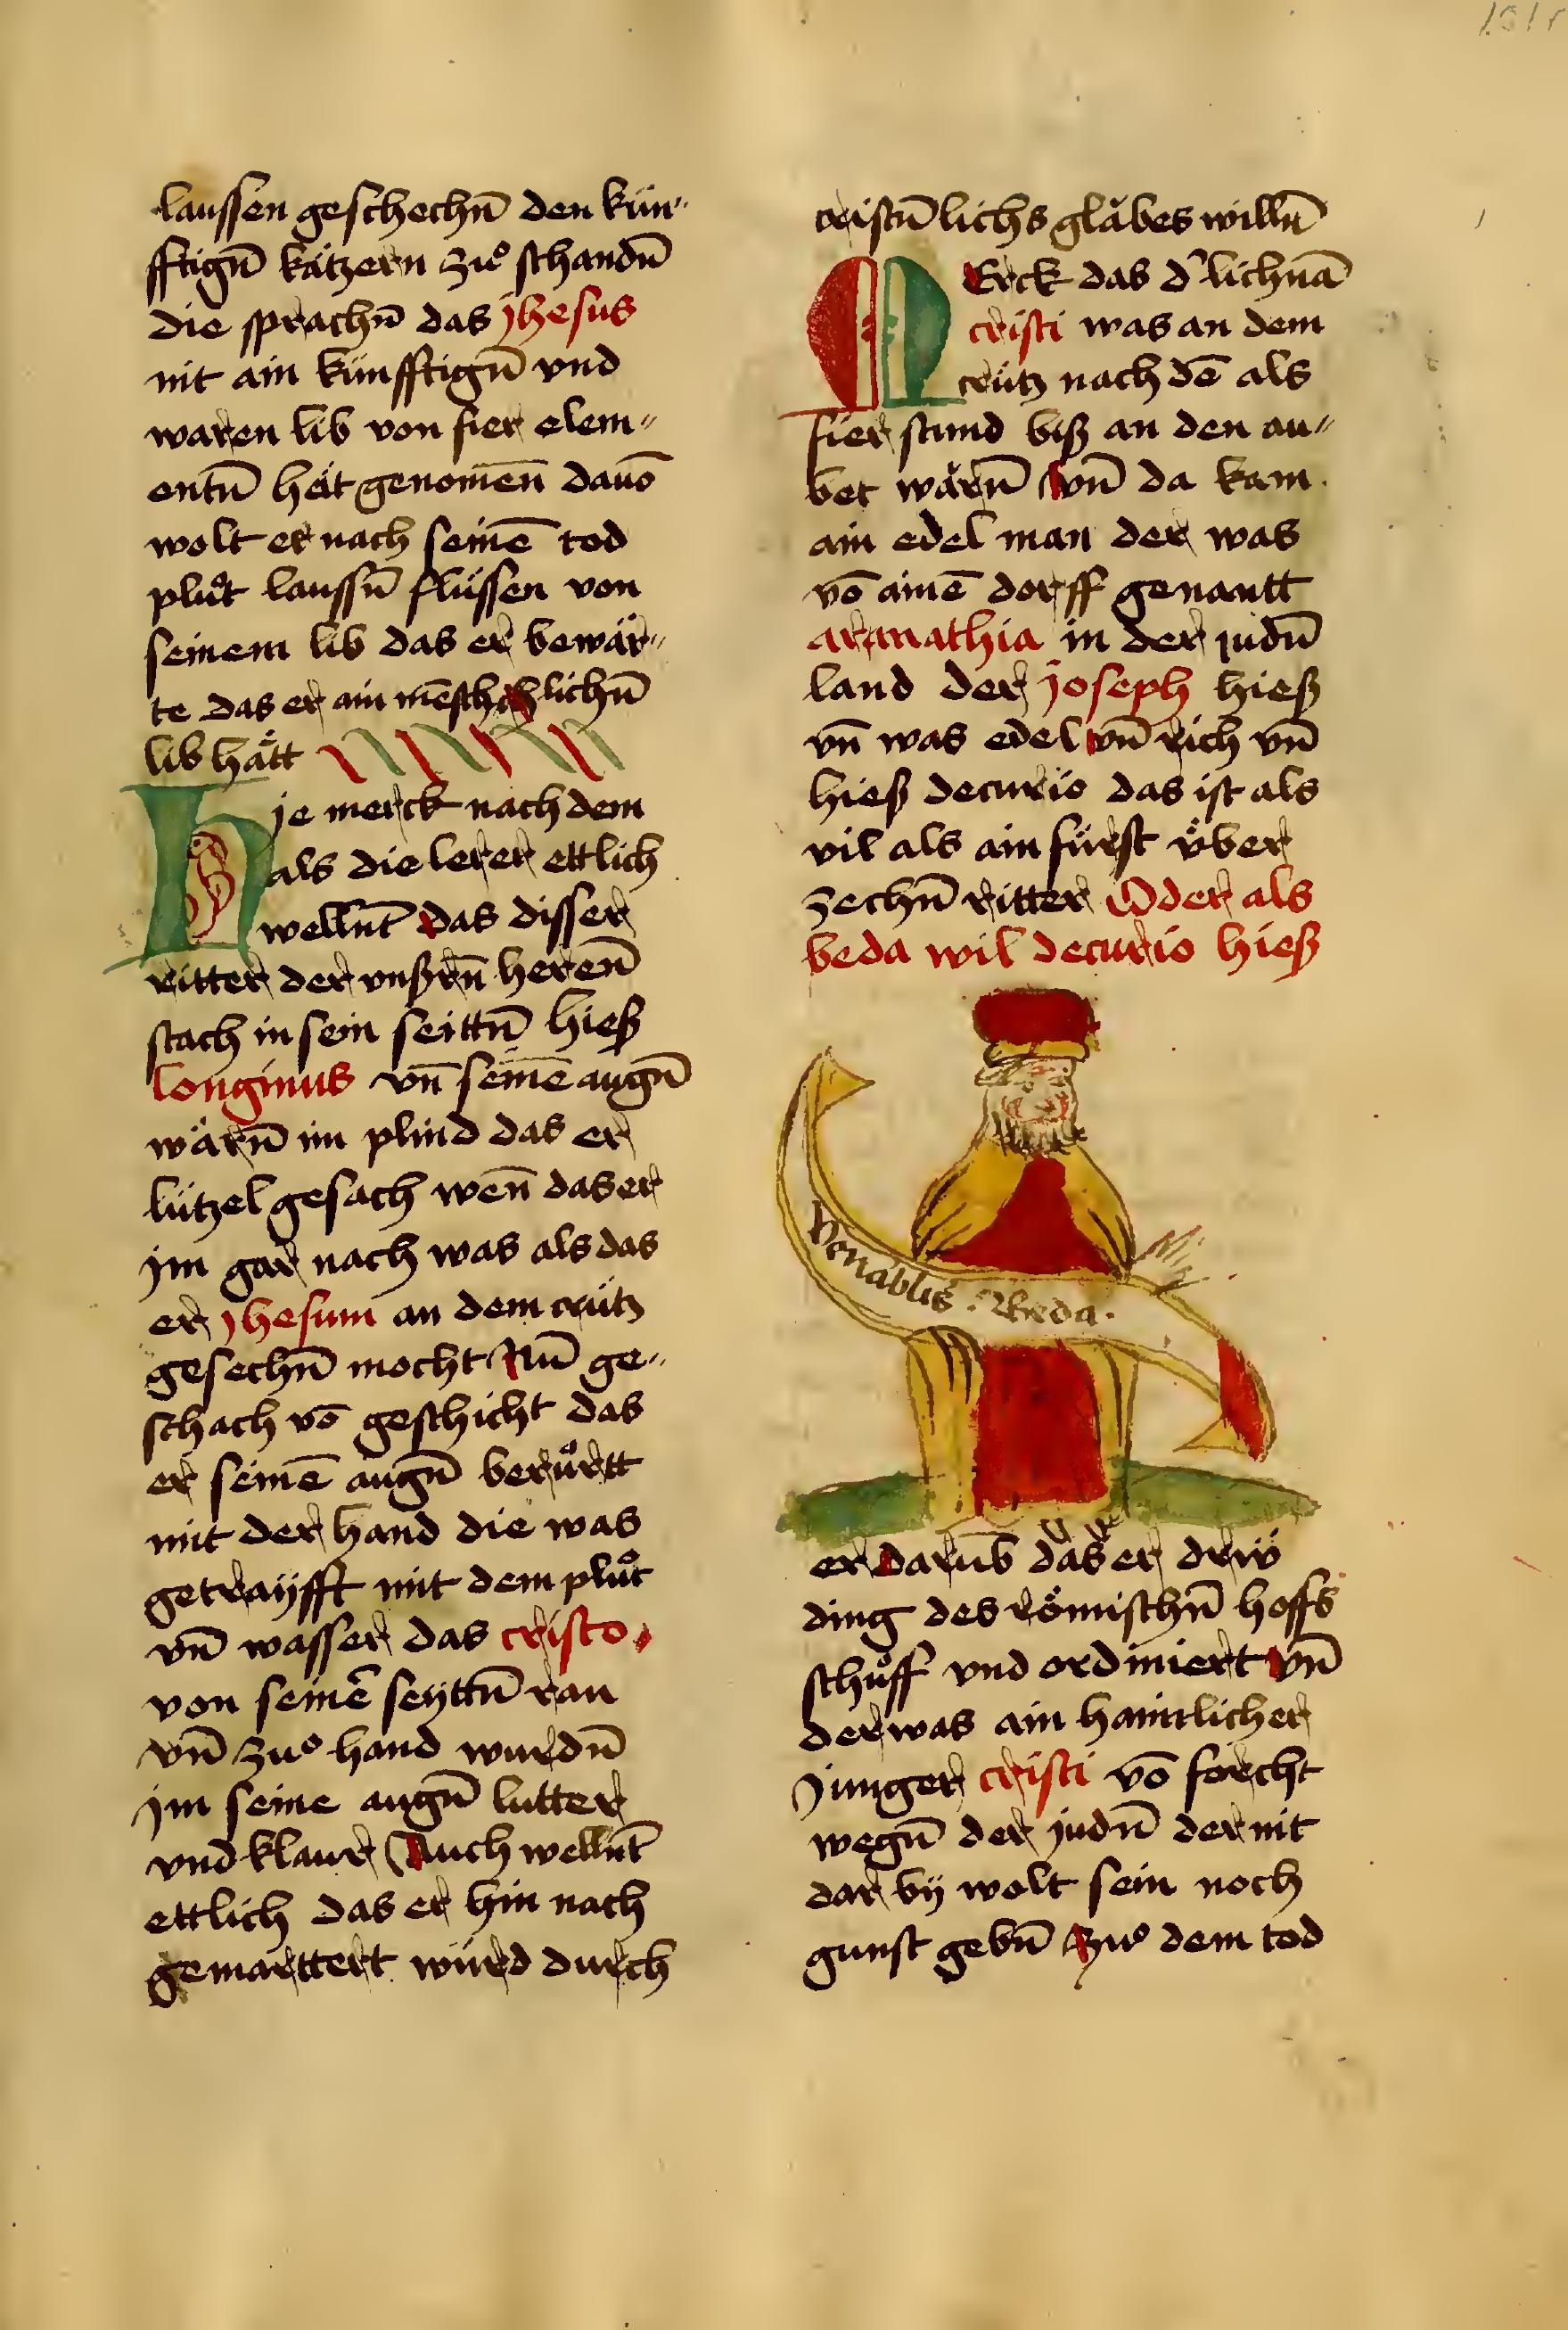 laussen geschechn̄ den kün„
fftign̄ kätzern zuͦ schandn̄
die sprachn̄ das jhesus
nit ain künfftign̄ vnd
waren lib von fier elem„
entn̄ hät genomēn dauō
wolt er nach seinē tod
pluͦt laussn̄ flüssen von
seinem lib das er bewär„
te das er ain mēschchlichn̄
lib hätt
Hie merck nach dem
als die lerer ettlich
wellnt̄ das disser
ritter der vnßrn̄ herēn
stach in sein seittn̄ hieß
longinus vn̄ seinē augn̄
wärn̄ im plind das er
lützel gesach wen̄ das er
jm gar nach was als das
er jhesum an dem crütz
gesechn̄ mocht Nūn ge„
schach vō geschicht das
er seinē augn̄ beruͦrtt
mit der hand die was
getraÿfft mit dem pluͦt
vn̄ wasser das cristo
von seinē seyttn̄ ran
vn̄ zuͦ hand wurdn̄
jm seine augn̄ lutter
vnd klaur Auch wellnt̄
ettlich das er hin nach
gemarttert würd durch
cristn̄lichs gläbes willn̄
MErck das d' lichnā
cristi was an dem
crütz nach dē als
fier stund biß an den au„
bet wärn̄ vn̄ da kam
ain edel man der was
vō ainē dorff genantt
armathia in der judn̄
land der joseph hieß
vn̄ was edel vn̄ rich vn̄
hieß decurio das ist als
vil als ain fürst über
zechn̄ ritter Oder als
beda wil decurio hieß
Venablis Beda
er darūb das er drÿ
ding des römischn̄ hoffs
schuͦff vnd ordiniert vn̄
der was ain haimlicher
junger cristi vō forcht
wegn̄ der judn̄ der nit
dar bÿ wolt sein noch
gunst gebn̄ zuͦ dem tod